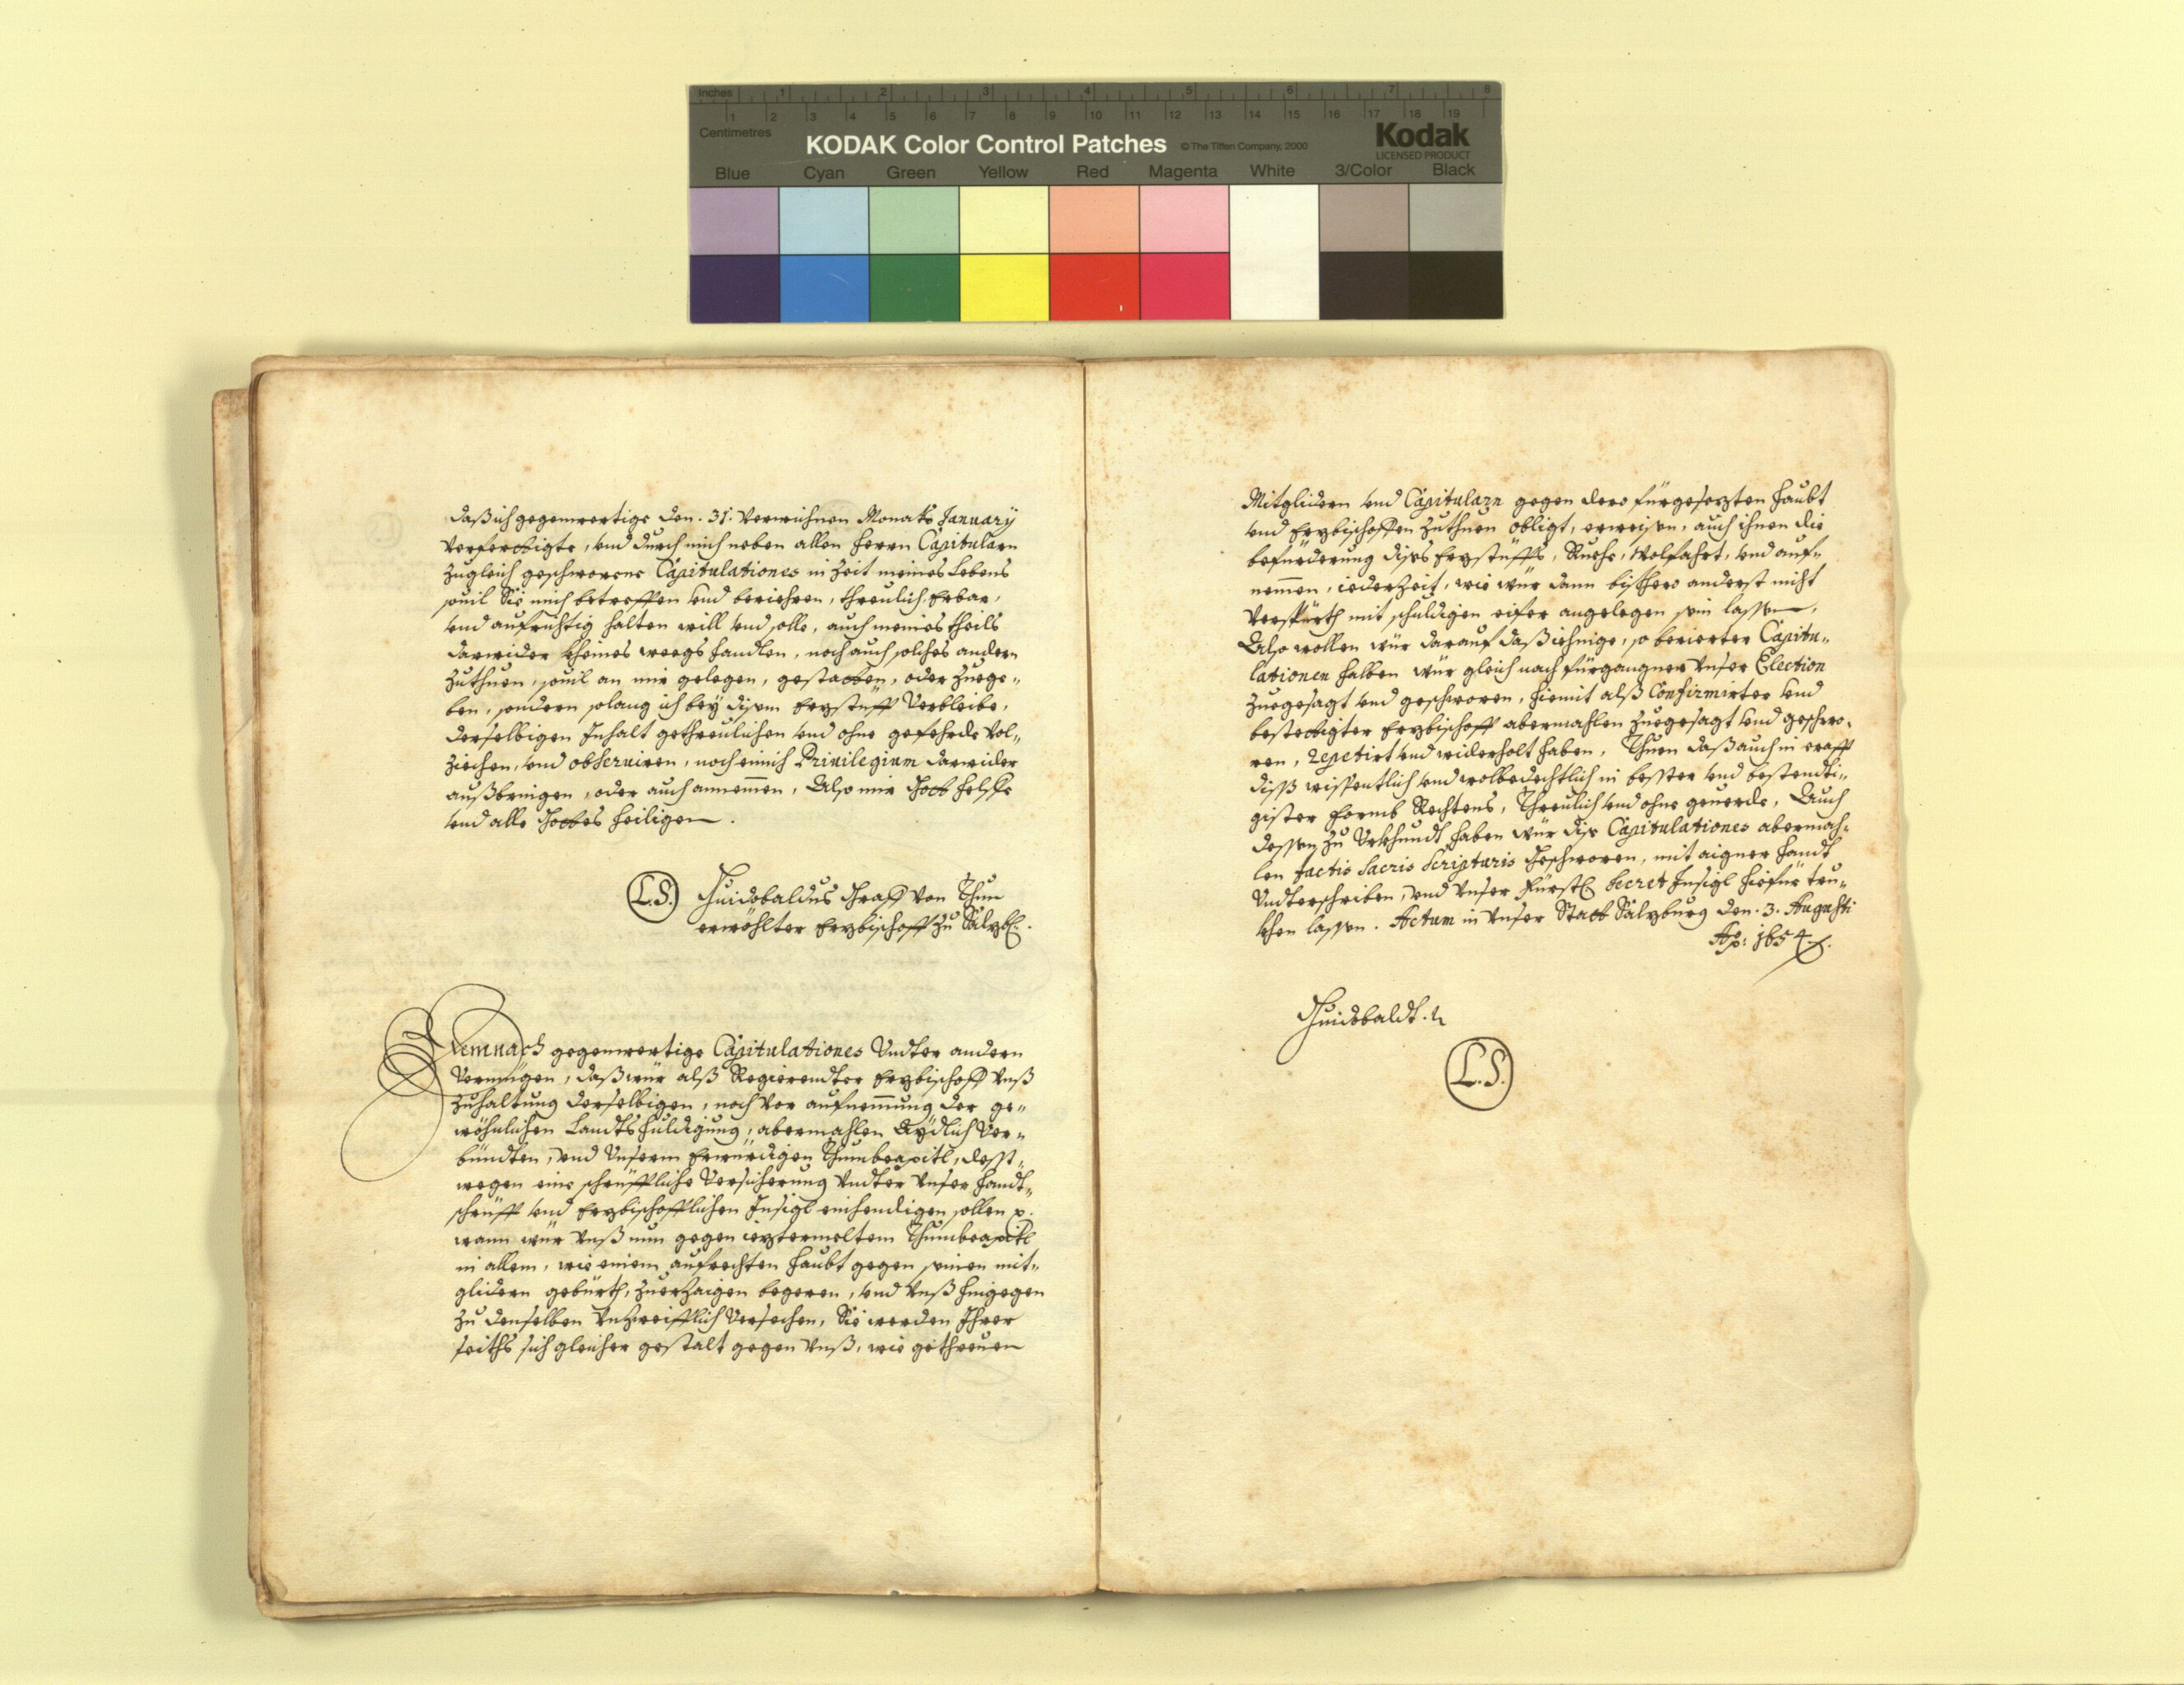 Inches 1 2 3 4 5 6 7 8
1 2 3 4 5 6 7 8 9 10 11 12 13 14 15 16 17 18 19
Centimetres
KODAK Color Control Patches © The Tiffen Company, 2000 Kodak
LICENSED PRODUCT
Blue Cyan Green Yellow Red Magenta White 3/Color Black
daß ich gegenwertige den. 31. verwichnen Monats January
verferttigte, vnd durch mich neben allen herrn Capitularn
zugleich geschworene Capitulationes in Zeit meines Lebens
souil Sie mich betreffen vnd beriehren, threulich, Erbar,
vnd aufrichtig halten will vnd solle, auch meines theils
darwider kheines weegs handlen, noch auch solches andern
zuthuen, souil an mir gelegen, gestatten, oder zuege„
ben, sondern solang ich bey disem Erzstüfft verbleibe,
derselbigen Inhalt gethreulichen vnd ohne gefehrde vol„
ziechen, vnd obseruiren, noch einich Priuilegium darwider
außbringen, oder auch annemen, Also mir Gott helffe
vnd alle Gottes heiligen.
L.S. Guidobaldus Graff von Thun
erwöhlter Erzbischoff zu Salzb.
Demnach gegenwertige Capitulationes Vndter andern
Vermögen, daß wür alß Regierendter Erzbischoff vnß
zuhaltung derselbigen, noch vor aufnemung der ge„
wöhnlichen Landtshuldigung, abermahlen Aydlich ver„
bündten, vnd Vnserm Erwürdigen Thumbcapitl, desst„
wegen eine schrüfftliche Versicherung vndter vnser handt„
schrüfft vnd Erzbischofflichen Insigl einhendigen sollen p.
wann wür vnß nun gegen ieztermeltem Thumbcapitl
in allem, wie einem aufrechten haubt gegen seinen mit„
glidern gebürth, zuerzaigen begeren, vnd vnß hingegen
zu denselben vnzweifflich versechen, Sie werden Ihrer
seiths sich gleicher gestalt gegen vnß, wie gethreuen
Mitglidern vnd Capitularn gegen dero fürgesezten haubt
vnd Erzbischoffen zuthuen obligt, erweisen, auch ihnen die
befürderung dises Erzstüffts, Ruehe, wolfahrt, vnd auf„
nemen, iederzeit, wie wür dann bißhero anderst nicht
verspürth mit schuldigen eifer angelegen sein lassen,
Also wollen wür darauf daßiehnige, so berierter Capitu„
lationen halben wür gleich nach fürgangner vnser Election
zuegesagt vnd geschworen, hiemit alß Confirmirter vnd
bestettigter Erzbischoff abermahlen zuegesagt vnd geschwo„
ren, repetirt vnd widerholt haben, Thuen daß auch in crafft
diss wissentlich vnd wolbedechtlich in besster vnd bestendti„
gister Formb Rechtens, Threulich vnd ohne geuerde, Auch
dessen zu Vrkhundt haben wür dise Capitulationes abermah„
len tactis Sacris Scripturis Geschworen, mit aigner handt
Vndterschriben, vnd vnser Fürstl. Secret Insigl hiefür tru„
khen lassen. Actum in vnser Statt Salzburg den. 3. Augusti
Ao: 1654.
Guidobaldt.
L.S.